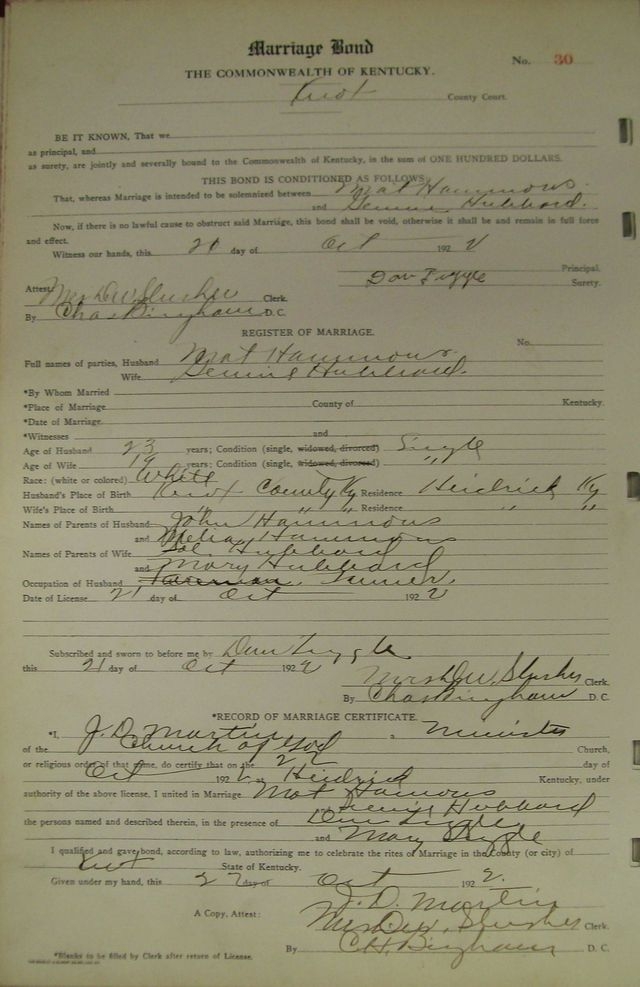 Marriage Bond
No. 30
THE COMMONWEALTH OF KENTUCKY.
Knox County Court.
BE IT KNOWN, That we
as principal, and
as surety, are jointly and severally bound to the Commonwealth of Kentucky, in the sum of ONE HUNDRED DOLLARS.
THIS BOND IS CONDITIONED AS FOLLOWS:
That, whereas Marriage is intended to be solemnized between Mat Hammons
and Hubbard.
Now, if there is no lawful cause to obstruct said Marriage, this bond shall be void, otherwise it shall be and remain in full force
and effect.
Witness our hands, this 21 day of Oct 1922
Principal.
Surety.
Attest: Mrs. D. W. Slusher Clerk.
By Chas Bingham D. C.
REGISTER OF MARRIAGE.
No.
Full names of parties, Husband Mat Hammons.
Wife Hubbard.
*By Whom Married
*Place of Marriage County of Kentucky.
*Date of Marriage
*Witnesses and
Age of Husband 23 years; Condition (single, widowed, divorced) Single
Age of Wife 19 years; Condition (single, widowed, divorced) " "
Race: (white or colored) White
Husband's Place of Birth Knox County Ky Residence Heidrick Ky
Wife's Place of Birth " " " Residence " "
Names of Parents of Husband John Hammons
and Hammons
Names of Parents of Wife Hubbard
and Mary Hubbard
Occupation of Husband
Date of License 21 day of Oct 1922
Subscribed and sworn to before me by
this 21 day of Oct 1922
Mrs. D. W. Slusher Clerk.
By Chas Bingham D. C.
*RECORD OF MARRIAGE CERTIFICATE.
*I, J. D. Martin a Minister
of the Church of God Church,
or religious order of that name, do certify that on the 22 day of
Oct 1922, at Heidrick Kentucky, under
authority of the above license, I united in Marriage Mat Hamons
and Hubbard
the persons named and described therein, in the presence of
and
I qualified and gave bond, according to law, authorizing me to celebrate the rites of Marriage in the county (or city) of
Knox State of Kentucky.
Given under my hand, this 22 day of Oct 1922.
J. D. Martin
A Copy, Attest: Mrs. D. W. Slusher Clerk.
By C. H. Bingham D. C.
*Blanks to be filled by Clerk after return of License.